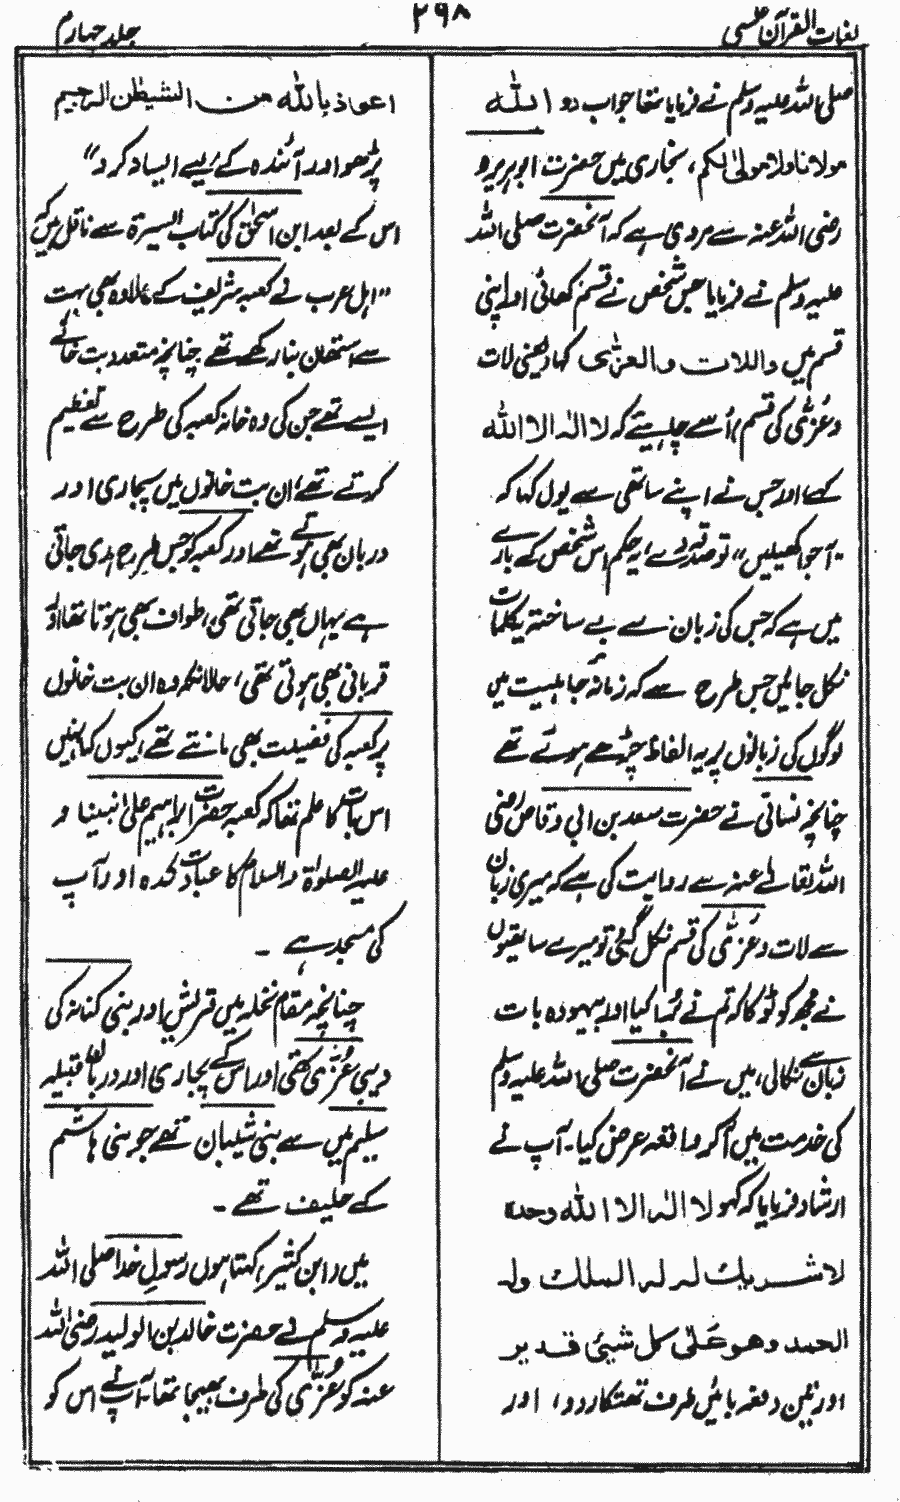 لغات القرآن عسی
۲۹۸
جلد چہارم
صلی اللہ علیہ وسلم نے فرمایا تھا جواب دو اللہ
مولانا ولا مولیٰ لکم، بخاری میں حضرت ابوہریرہ
رضی اللہ عنہ سے مروی ہے کہ آنحضرت صلی اللہ
علیہ وسلم نے فرمایا جس شخص نے قسم کھائی اور اپنی
قسم میں واللات والعزّٰی کہا (یعنی لات
و عُزّٰی کی قسم) اُسے چاہیے کہ لا الٰہ الا اللہ
کہے، اور جس نے اپنے ساتھی سے یوں کہا کہ
"آ جوا کھیلیں" تو صدقہ دے، یہ حکم اس شخص کے بارے
میں ہے کہ جس کی زبان سے بے ساختہ یہ کلمات
نکل جائیں جس طرح سے کہ زمانہ جاہلیت میں
لوگوں کی زبانوں پر یہ الفاظ چڑھے ہوئے تھے
چنانچہ نسائی نے حضرت سعد بن ابی وقاص رضی
اللہ تعالٰے عنہ سے روایت کی ہے کہ میری زبان
سے لات و عُزّٰی کی قسم نکل گئی تو میرے ساتھیوں
نے مجھ کو ٹوکا کہ تم نے بُرا کیا اور بیہودہ بات
زبان سے نکالی، میں نے آنحضرت صلی اللہ علیہ وسلم
کی خدمت میں آکر واقعہ عرض کیا۔ آپ نے
ارشاد فرمایا کہ کہو لا الٰہ الا اللہ وحدہ
لا شریک لہ لہ الملک ولہ
الحمد وھو علٰی کل شیئ قدیر
اور تین دفعہ بائیں طرف تھتکار دو، اور
اعوذ باللہ من الشیطٰن الرجیم
پڑھو اور آئندہ کے لیے ایسا نہ کرو"
اس کے بعد ابن اسحٰق کی کتاب السیرۃ سے ناقل ہیں کہ
"اہل عرب نے کعبہ شریف کے علاوہ بھی بہت
سے استھان بنا رکھے تھے چنانچہ متعدد بت خانے
ایسے تھے جن کی وہ خانہ کعبہ کی طرح سے تعظیم
کرتے تھے، ان بت خانوں میں پجاری اور
دربان بھی ہوتے تھے اور کعبہ کو جس طرح ہدی جاتی
ہے یہاں بھی جاتی تھی، طواف بھی ہوتا تھا اور
قربانی بھی ہوتی تھی، حالانکہ وہ ان بت خانوں
پر کعبہ کی فضیلت بھی مانتے تھے، کیوں کہ انہیں
اس بات کا علم تھا کہ کعبہ حضرت ابراہیم علیٰ نبینا و
علیہ الصلوٰۃ والسلام کا عبادت کدہ اور آپ
کی مسجد ہے ۔
چنانچہ مقام نخلہ میں قریش اور بنی کنانہ کی
دیبی عُزّٰی تھی اور اس کے پجاری اور دربان قبیلہ
سلیم میں سے بنی شیبان تھے جو بنی ہاشم
کے حلیف تھے ۔
میں (ابن کثیر) کہتا ہوں رسولِ خدا صلی اللہ
علیہ وسلم نے حضرت خالد بن الولید رضی اللہ
عنہ کو عُزّٰی کی طرف بھیجا تھا۔ آپ نے اس کو